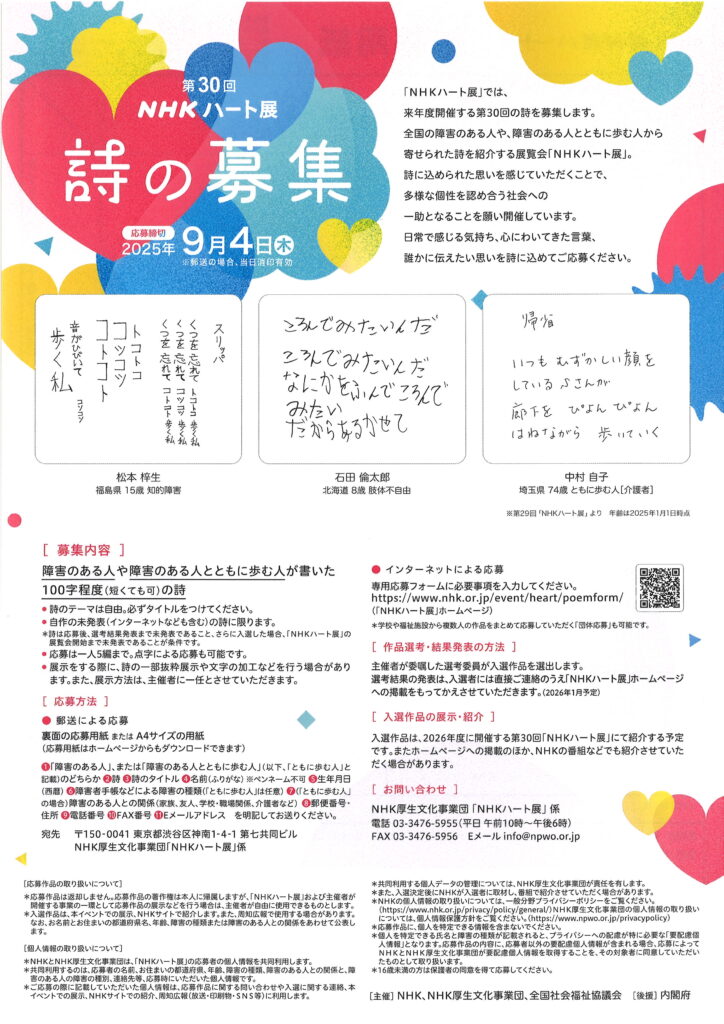 第30回
NHK ハート展
詩の募集
応募締切
2025年 9月4日 木
※郵送の場合、当日消印有効
「NHKハート展」では、
来年度開催する第30回の詩を募集します。
全国の障害のある人や、障害のある人とともに歩む人から
寄せられた詩を紹介する展覧会「NHKハート展」。
詩に込められた思いを感じていただくことで、
多様な個性を認め合う社会への
一助となることを願い開催しています。
日常で感じる気持ち、心にわいてきた言葉、
誰かに伝えたい思いを詩に込めてご応募ください。
スリッパ
くつを忘れて トコトコ 歩く私
くつを忘れて コツコツ 歩く私
くつを忘れて コトコト 歩く私
トコトコ
コッコツ
コトコト
音がひびいて コツコツ
歩く私
松本 梓生
福島県 15歳 知的障害
ころんでみたいんだ
ころんでみたいんだ
なにかをふんでころんで
みたい
だからあるかせて
石田 倫太郎
北海道 8歳 肢体不自由
帰省
いつも むずかしい顔を
している Sさんが
廊下を ぴょん ぴょん
はねながら 歩いていく
中村 自子
埼玉県 74歳 ともに歩む人[介護者]
※第29回「NHKハート展」より 年齢は2025年1月1日時点
[ 募集内容 ]
障害のある人や障害のある人とともに歩む人が書いた
100字程度(短くても可)の詩
● 詩のテーマは自由。必ずタイトルをつけてください。
● 自作の未発表(インターネットなども含む)の詩に限ります。
＊詩は応募後、選考結果発表まで未発表であること、さらに入選した場合、「NHKハート展」の
展覧会開始まで未発表であることが条件です。
● 応募は一人5編まで。点字による応募も可能です。
● 展示をする際に、詩の一部抜粋展示や文字の加工などを行う場合があり
ます。また、展示方法は、主催者に一任とさせていただきます。
[ 応募方法 ]
● 郵送による応募
裏面の応募用紙 または A4サイズの用紙
(応募用紙はホームページからもダウンロードできます)
❶「障害のある人」、または「障害のある人とともに歩む人」(以下、「ともに歩む人」と
記載)のどちらか ❷詩 ❸詩のタイトル ❹名前(ふりがな) ※ペンネーム不可 ❺生年月日
(西暦) ❻障害者手帳などによる障害の種類(「ともに歩む人」は任意) ❼(「ともに歩む人」
の場合)障害のある人との関係(家族、友人、学校・職場関係、介護者など) ❽郵便番号・
住所 ❾電話番号 ❿FAX番号 ⓫Eメールアドレス を明記してお送りください。
宛先 〒150-0041 東京都渋谷区神南1-4-1 第七共同ビル
NHK厚生文化事業団「NHKハート展」係
● インターネットによる応募
専用応募フォームに必要事項を入力してください。
https://www.nhk.or.jp/event/heart/poemform/
(「NHKハート展」ホームページ)
＊学校や福祉施設から複数人の作品をまとめて応募していただく「団体応募」も可能です。
[ 作品選考・結果発表の方法 ]
主催者が委嘱した選考委員が入選作品を選出します。
選考結果の発表は、入選者には直接ご連絡のうえ「NHKハート展」ホームページ
への掲載をもってかえさせていただきます。(2026年1月予定)
[ 入選作品の展示・紹介 ]
入選作品は、2026年度に開催する第30回「NHKハート展」にて紹介する予定
です。またホームページへの掲載のほか、NHKの番組などでも紹介させていた
だく場合があります。
[ お問い合わせ ]
NHK厚生文化事業団 「NHKハート展」 係
電話 03-3476-5955(平日 午前10時～午後6時)
FAX 03-3476-5956 Eメール info@npwo.or.jp
[応募作品の取り扱いについて]
＊応募作品は返却しません。応募作品の著作権は本人に帰属しますが、「NHKハート展」および主催者が
開催する事業の一環として応募作品の展示などを行う場合は、主催者が自由に使用できるものとします。
＊入選作品は、本イベントでの展示、NHKサイトで紹介します。また、周知広報で使用する場合があります。
なお、お名前とお住まいの都道府県名、年齢、障害の種類または障害のある人との関係をあわせて公表し
ます。
[個人情報の取り扱いについて]
＊NHKとNHK厚生文化事業団は、「NHKハート展」の応募者の個人情報を共同利用します。
＊共同利用するのは、応募者の名前、お住まいの都道府県、年齢、障害の種類、障害のある人との関係と、障
害のある人の障害の種別、連絡先等、応募時にいただいた個人情報です。
＊ご応募の際に記載していただいた個人情報は、応募作品に関する問い合わせや入選に関する連絡、本
イベントでの展示、NHKサイトでの紹介、周知広報(放送・印刷物・SNS等)に利用します。
＊共同利用する個人データの管理については、NHK厚生文化事業団が責任を有します。
＊また、入選決定後にNHKが入選者に取材し、番組で紹介させていただく場合があります。
＊NHKの個人情報の取り扱いについては、一般分野プライバシーポリシーをご覧ください。
(https://www.nhk.or.jp/privacy/policy/general/)NHK厚生文化事業団の個人情報の取り扱い
については、個人情報保護方針をご覧ください。(https://www.npwo.or.jp/privacypolicy)
＊応募作品に、個人を特定できる情報を含まないでください。
＊個人を特定できる氏名と障害の種類が記載されると、プライバシーへの配慮が特に必要な「要配慮個
人情報」となります。応募作品の内容に、応募者以外の要配慮個人情報が含まれる場合、応募によって
NHKとNHK厚生文化事業団が要配慮個人情報を取得することを、その対象者に同意していただい
たものとして取り扱います。
＊16歳未満の方は保護者の同意を得て応募してください。
[主催] NHK、NHK厚生文化事業団、全国社会福祉協議会 [後援] 内閣府